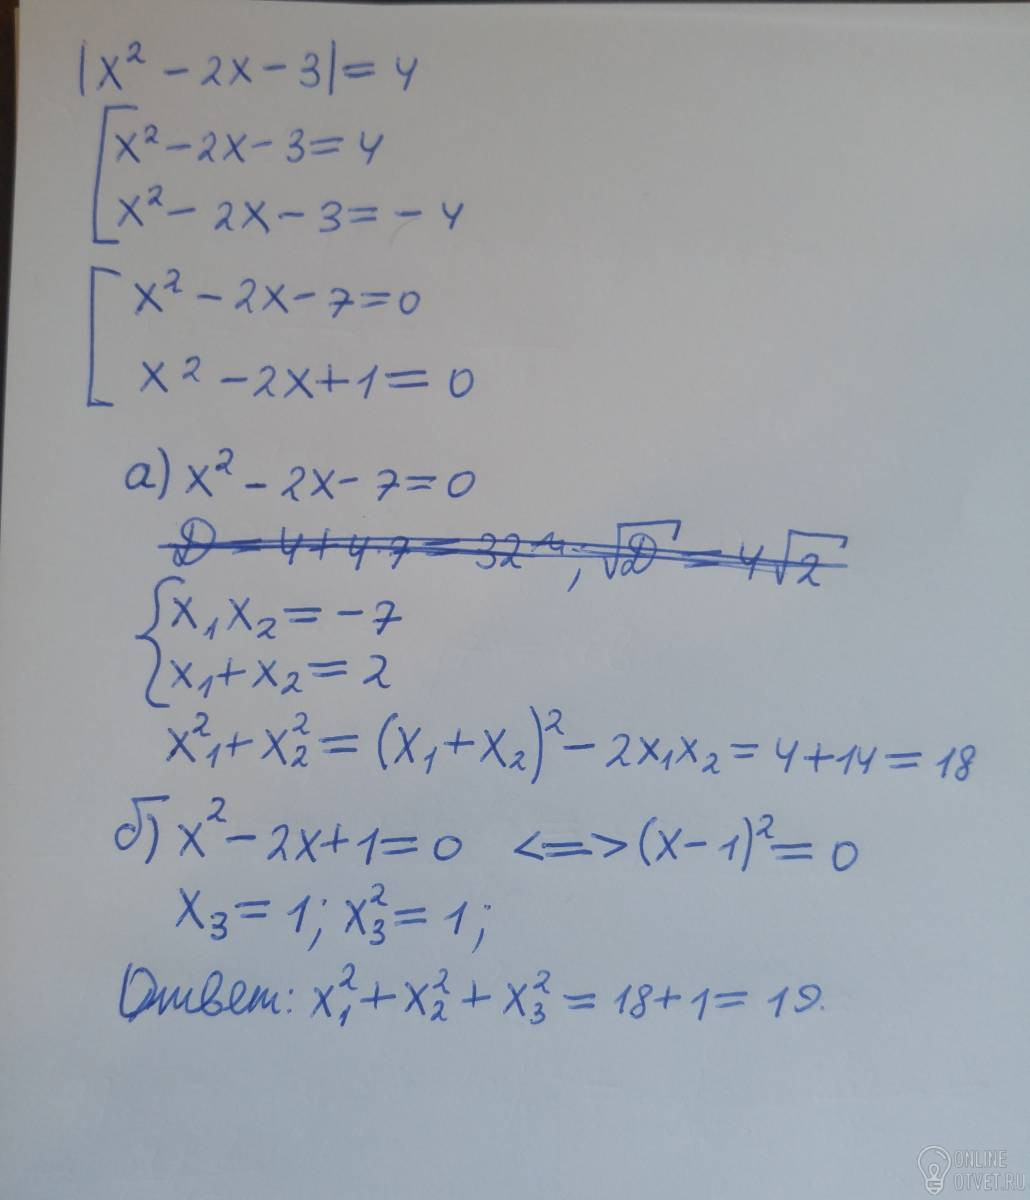 |x² - 2x - 3| = 4
x² - 2x - 3 = 4
x² - 2x - 3 = - 4
x² - 2x - 7 = 0
x² - 2x + 1 = 0
а) x² - 2x - 7 = 0
D = 4 + 4·7 = 32; √D = 4√2
x₁x₂ = -7
x₁ + x₂ = 2
x₁² + x₂² = (x₁ + x₂)² - 2x₁x₂ = 4 + 14 = 18
б) x² - 2x + 1 = 0 <=> (x - 1)² = 0
x₃ = 1; x₃² = 1;
Ответ: x₁² + x₂² + x₃² = 18 + 1 = 19.
ONLINE
OTVET.RU